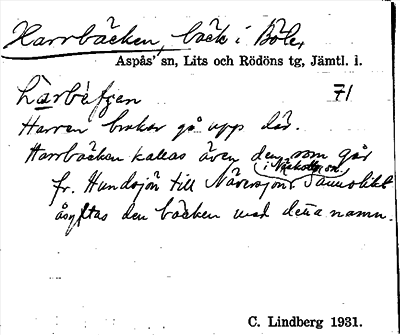 Harrbäcken, bäck i Böle,
Aspås sn, Lits och Rödöns tg, Jämtl. i.
71
Harren brukar gå upp där.
Harrbäcken kallas även den som går
i Näskotts sn,
fr. Hundsjön till Närersjön. Sannolikt
åsyftas den bäcken med detta namn.
C. Lindberg 1931.